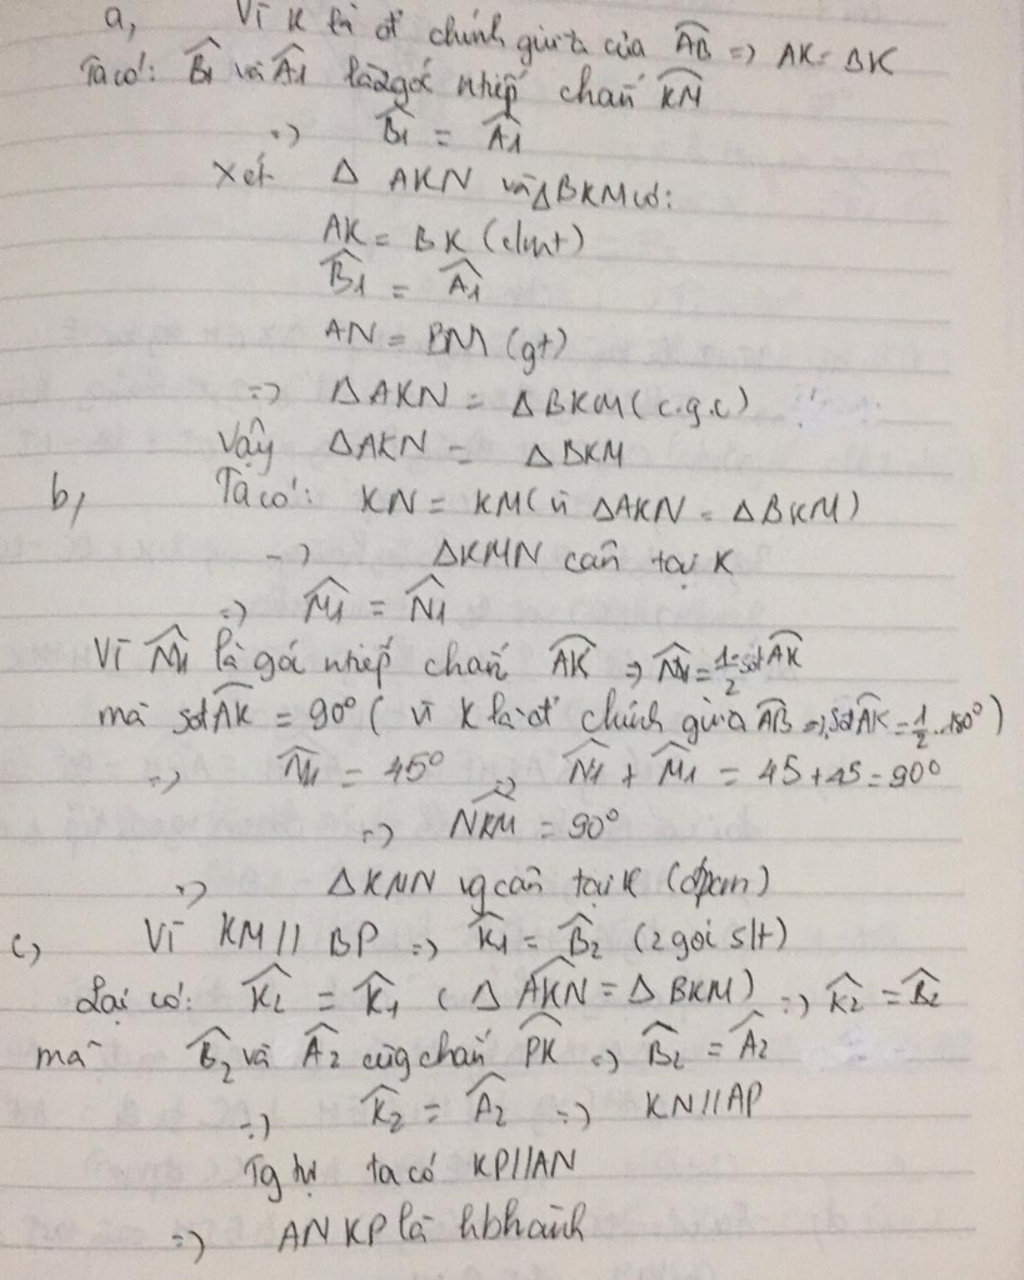 a, Vì K là đ' chính giữa của AB => AK = BK
Ta có: B1 và A1 là 2 góc nhiếp chắn KM
=> B1 = A1
Xét Δ AKN và Δ BKM có:
AK = BK (clmt)
B1 = A1
AN = BM (gt)
=> Δ AKN = Δ BKM (c.g.c)
Vậy Δ AKN = Δ BKM
b, Ta có: KN = KM (vì Δ AKN = Δ BKM)
=> Δ KMN cân tại K
=> M1 = N1
Vì M1 là góc nhiếp chắn AK => M1 = 1/2 sđ AK
mà sđ AK = 90° (vì K là đ' chính giữa AB => sđ AK = 1/2 . 180°)
=> M1 = 45° => N1 + M1 = 45 + 45 = 90°
=> NKM = 90°
=> Δ KMN vg cân tại K (đpcm)
c, Vì KM // BP => K1 = B2 (2 gói slt)
Lại có: K2 = K1 (Δ AKN = Δ BKM) => K2 = B2
mà B2 và A2 cùg chắn PK => B2 = A2
=> K2 = A2 => KN // AP
Tg tự ta có KP // AN
=> ANKP là hbhành